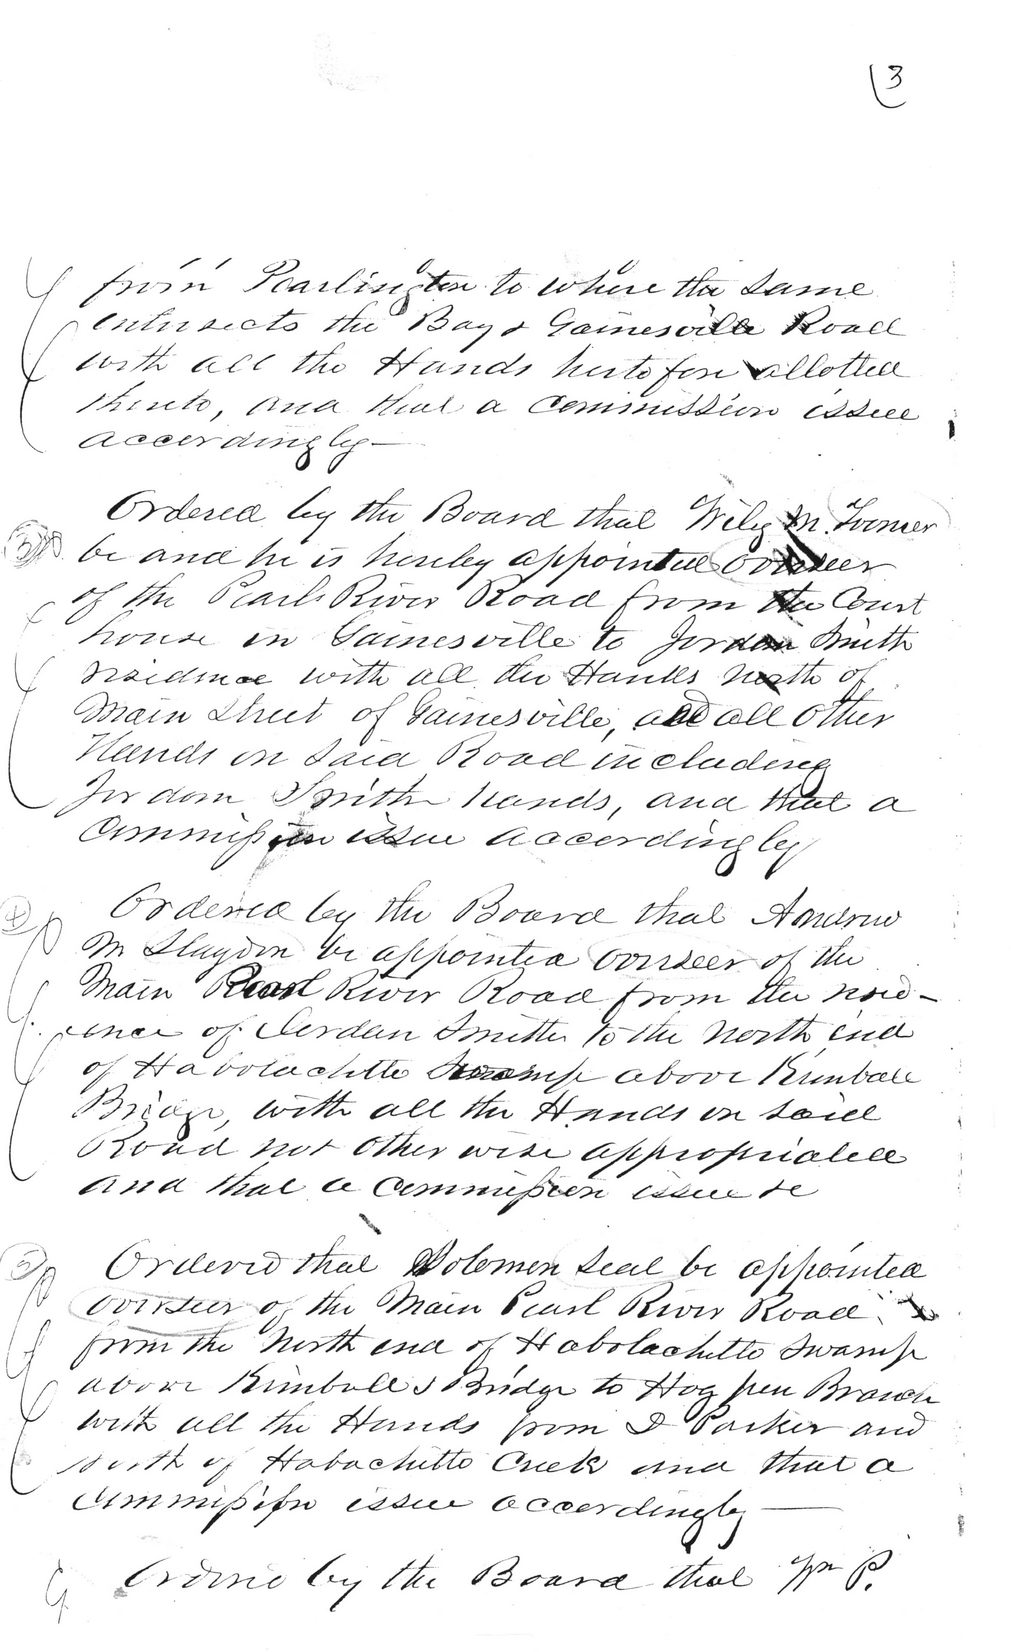 3
from Pearlington to where the same
intersects the Bay & Gainesville Road
with all the Hands hertofore allotted
thereto, and that a commission issue
accordingly—
Ordered by the Board that Wiley M. Toomer
3
be and he is hereby appointed overseer
of the Pearl River Road from the Court
house in Gainesville to Jordan Smith
residence with all the Hands north of
Main Street of Gainesville, and all other
Hands on said Road including
Jordan Smith hands, and that a
Commission issue accordingly
Ordered by the Board that Andrew
4
M Slaydon be appointed overseer of the
Main Pearl River Road from the resid-
ence of Jordan Smith to the north end
of Habolachitto Swamp above Kimball
Bridge, with all the Hands on said
Road not otherwise appropriated
and that a commission issue &c
Ordered that Solomon Seal be appointed
5
overseer of the Main Pearl River Road
from the North end of Habolachitto Swamp
above Kimballs Bridge to Hog pen Branch
with all the Hands from D Parker and
south of Habachitto Creek and that a
Commission issue accordingly —
Ordered by the Board that Wm P.